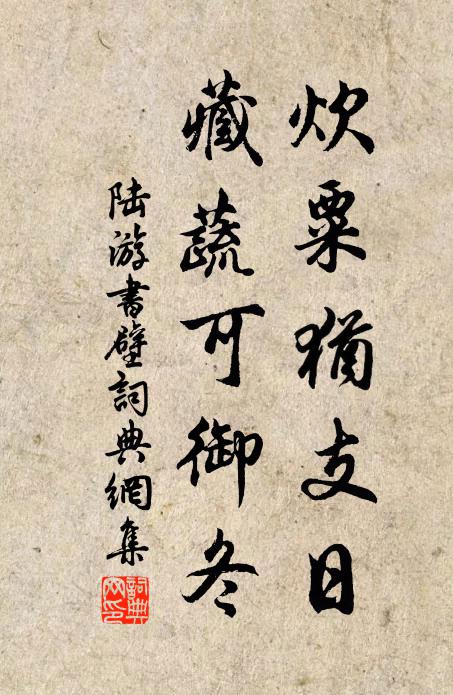 炊粟猶支日
藏蔬可御冬
陆游書壁詞典網集
詞典
网印